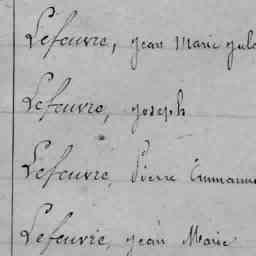 Lefeuvre, Jean Marie Jule
Lefeuvre, Joseph
Lefeuvre, Pierre Emmanue
Lefeuvre, Jean Marie